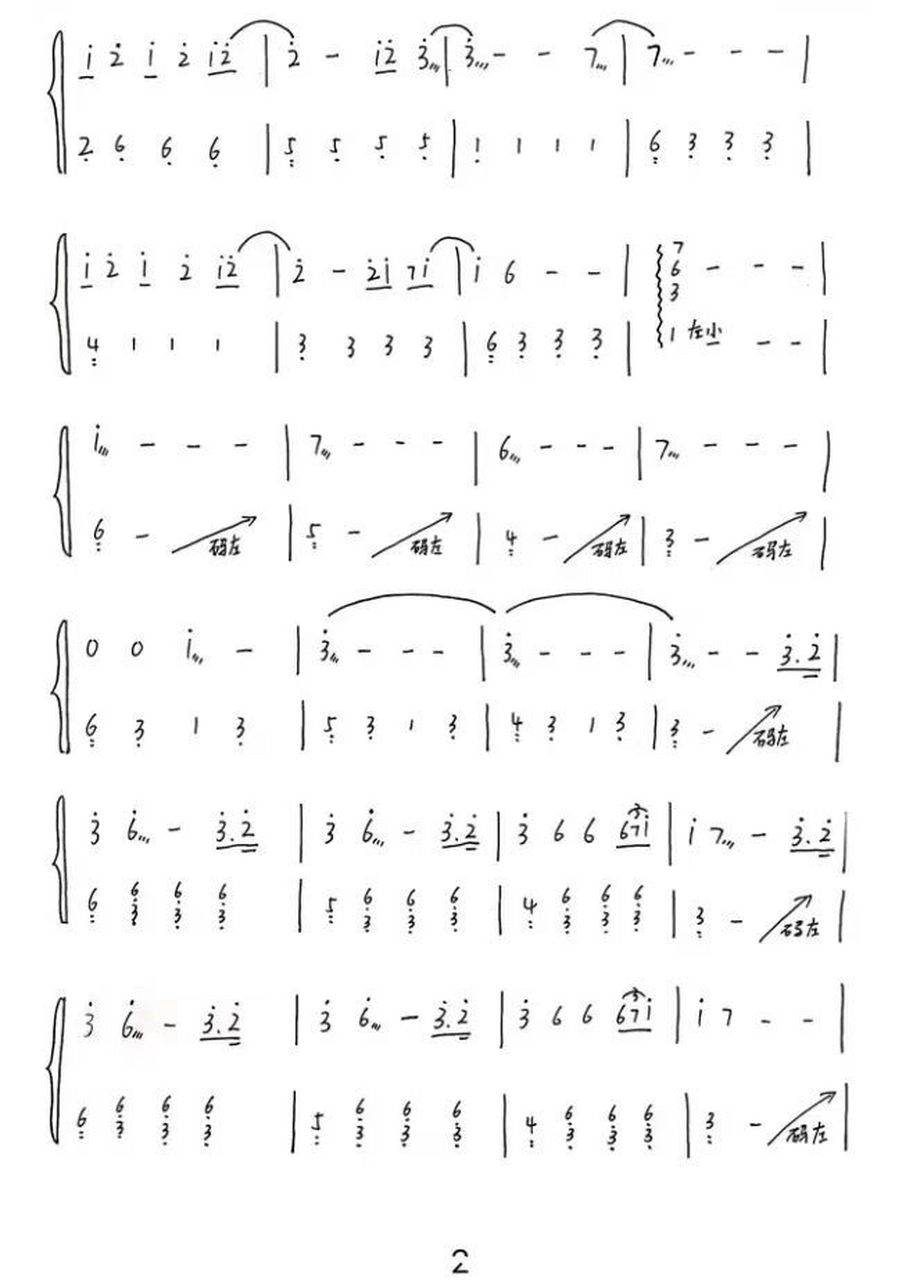 i̇ 2̇ i̇ 2̇ i̇2̇ | 2̇ - i̇2̇ 3̇,,, | 3̇,,, - - 7,,, | 7,,, - - - |
2̣ 6̣ 6̣ 6̣ | 5̤ 5̣ 5̣ 5̣ | 1̣ 1 1 1 | 6̤ 3̣ 3̣ 3̣ |
i̇ 2̇ i̇ 2̇ i̇2̇ | 2̇ - 2̇i̇ 7i̇ | i̇ 6 - - | 7 6 3 - - - |
4̤ 1 1 1 | 3̣ 3 3 3 | 6̤ 3̣ 3̣ 3̣ | 1 左小 - - |
i̇,,, - - - | 7,,, - - - | 6,,, - - - | 7,,, - - - |
6̣ - 码左 | 5̣ - 码左 | 4̤ - 码左 | 3̤ - 码左 |
0 0 i̇,,, - | 3̇,,, - - - | 3̇,,, - - - | 3̇,,, - - 3̇.2̇ |
6̤ 3̣ 1 3̣ | 5̤ 3̣ 1 3̣ | 4̤ 3̣ 1 3̣ | 3̤ - 码左 |
3̇ 6̇,,, - 3̇.2̇ | 3̇ 6̇,,, - 3̇.2̇ | 3̇ 6 6 3 67i̇ | i̇ 7,,, - 3̇.2̇ |
6̤ 6̣3̣ 6̣3̣ 6̣3̣ | 5̤ 6̣3̣ 6̣3̣ 6̣3̣ | 4̤ 6̣3̣ 6̣3̣ 6̣3̣ | 3̤ - 码左 |
3̇ 6̇,,, - 3̇.2̇ | 3̇ 6̇,,, - 3̇.2̇ | 3̇ 6 6 3 67i̇ | i̇ 7 - - |
6̤ 6̣3̣ 6̣3̣ 6̣3̣ | 5̤ 6̣3̣ 6̣3̣ 6̣3̣ | 4̤ 6̣3̣ 6̣3̣ 6̣3̣ | 3̤ - 码左 |
2